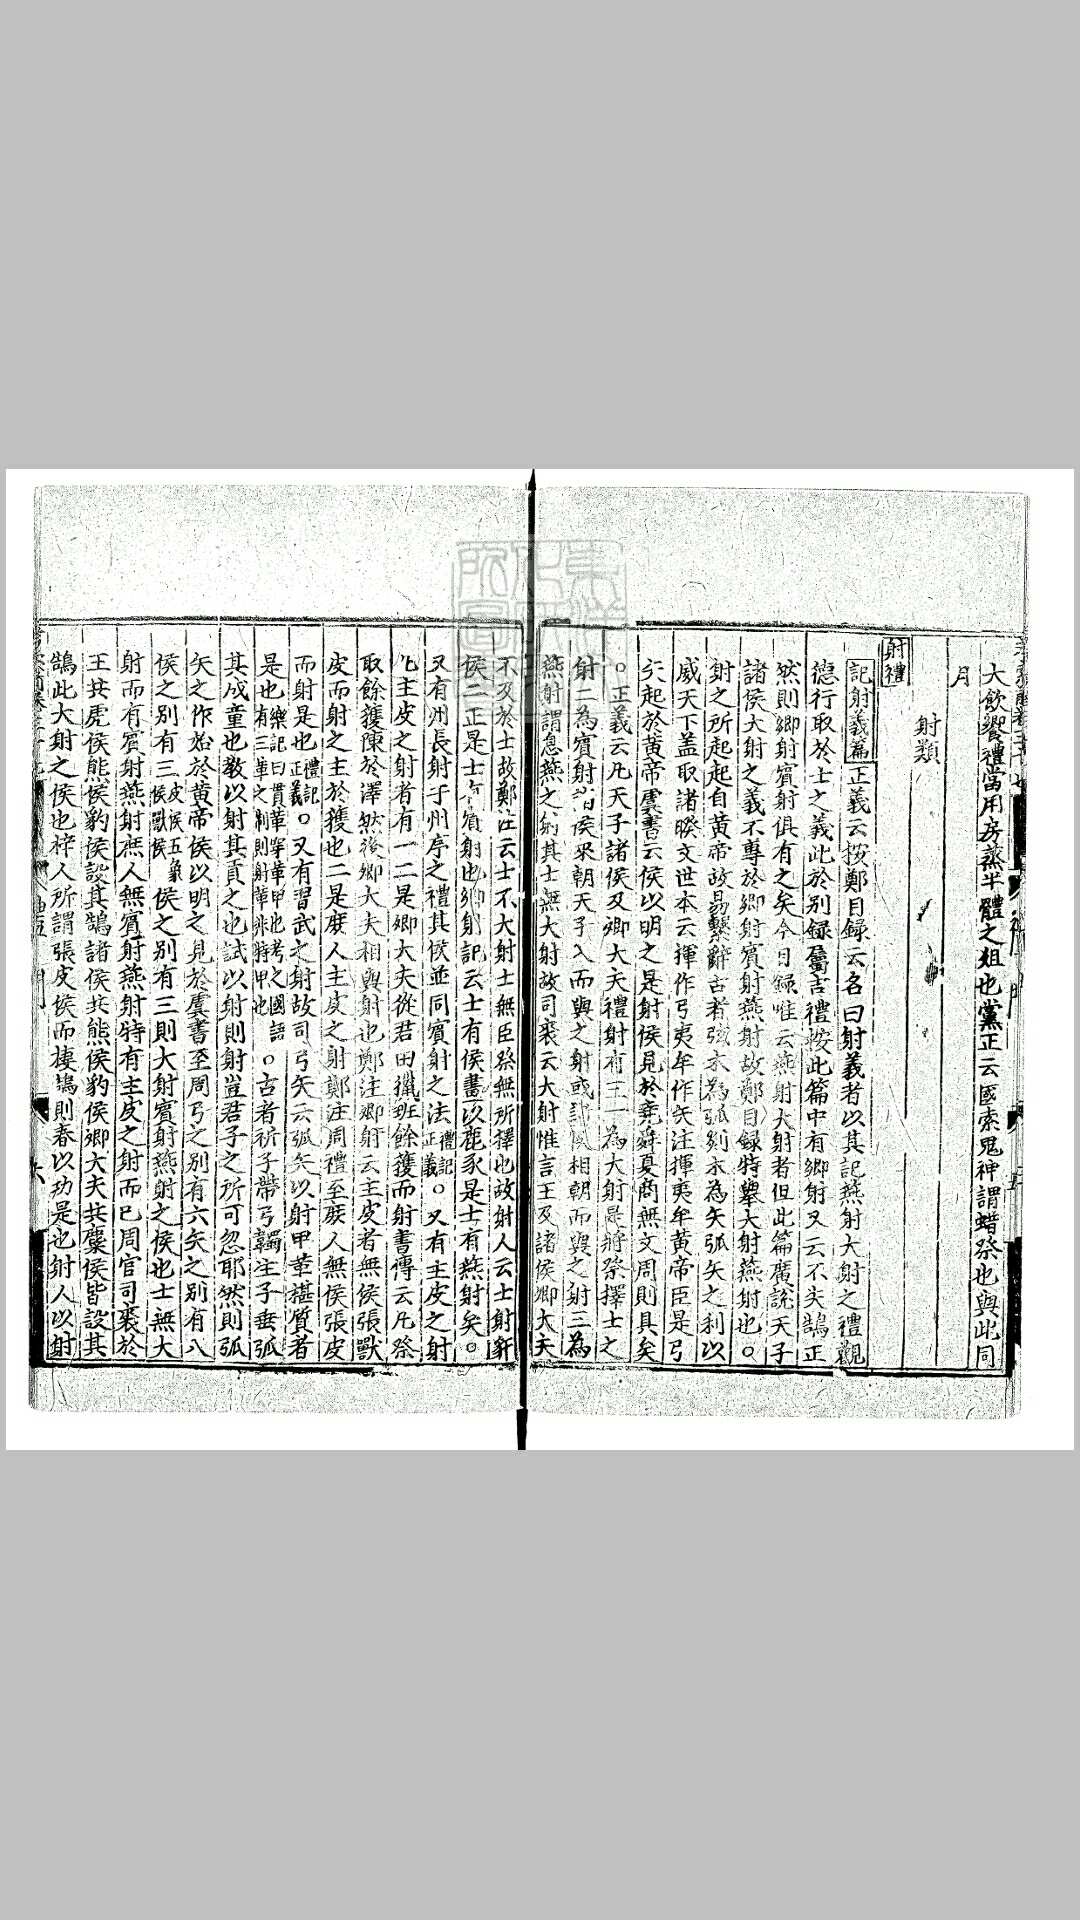 大飲饗禮當用房蒸半體之俎也黨正云國索鬼神謂蜡祭也與此同
月
射類
射禮
記射義篇正義云按鄭目録云名曰射義者以其記燕射大射之禮觀
德行取於士之義此於別録屬吉禮按此篇中有鄉射又云不失鵠正
然則鄉射賓射俱有之矣今目録唯云燕射大射者但此篇廣說天子
諸侯大射之義不專於鄉射賓射燕射故鄭目録特舉大射燕射也○
射之所起起自黃帝故易繫辭古者弦木為弧剡木為矢弧矢之利以
威天下蓋取諸睽又世本云揮作弓夷牟作矢注揮夷牟黃帝臣是弓
矢起於黃帝虞書云侯以明之是射侯見於堯舜夏商無文周則具矣
○正義云凡天子諸侯及卿大夫禮射有三一為大射是將祭擇士之
射二為賓射諸侯來朝天子入而與之射或諸侯相朝而與之射三為
燕射謂息燕之射其士無大射故司裘云大射惟言王及諸侯卿大夫
不及於士故鄭注云士不大射士無臣祭無所擇也故射人云士射豻
侯二正是士有賓射也鄉射記云士有侯畫以鹿豕是士有燕射矣○
又有州長射于州序之禮其侯並同賓射之法禮記正義○又有主皮之射
凡主皮之射者有一二是卿大夫從君田獵班餘獲而射書傳云凡祭
取餘獲陳於澤然後卿大夫相與射也鄭注鄉射云主皮者無侯張獸
皮而射之主於獲也二是庶人主皮之射鄭注周禮至庶人無侯張皮
而射是也禮記正義○又有習武之射故司弓矢云弧矢以射甲革椹質者
是也樂記曰貫革穿革甲也考之國語有三革之制則射革非特甲也○古者祈子帶弓韣注子垂弧
其成童也教以射其貢之也試以射則射豈君子之所可忽耶然則弧
矢之作始於黃帝侯以明之見於虞書至周弓之別有六矢之別有八
侯之別有三皮侯五彖侯獸侯侯之別有三則大射賓射燕射之侯也士無大
射而有賓射燕射庶人無賓射燕射特有主皮之射而已周官司裘於
王共虎侯熊侯豹侯設其鵠諸侯共熊侯豹侯卿大夫共麋侯皆設其
鵠此大射之侯也梓人所謂張皮侯而棲鵠則春以功是也射人以射